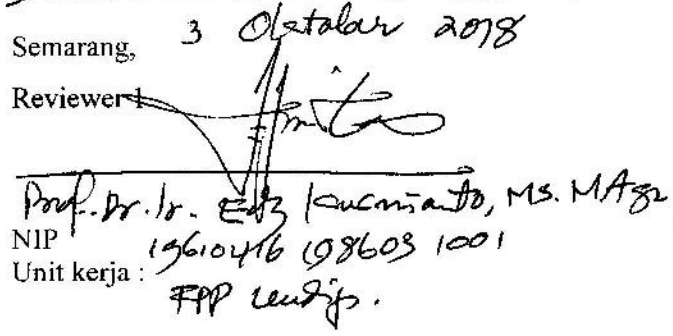 Semarang, 3 Oktober 2018
Reviewer 1
Prof. Dr. Ir. Edy Kurnianto, MS. MAgr
NIP 19610416 198603 1001
Unit kerja : FPP Undip.